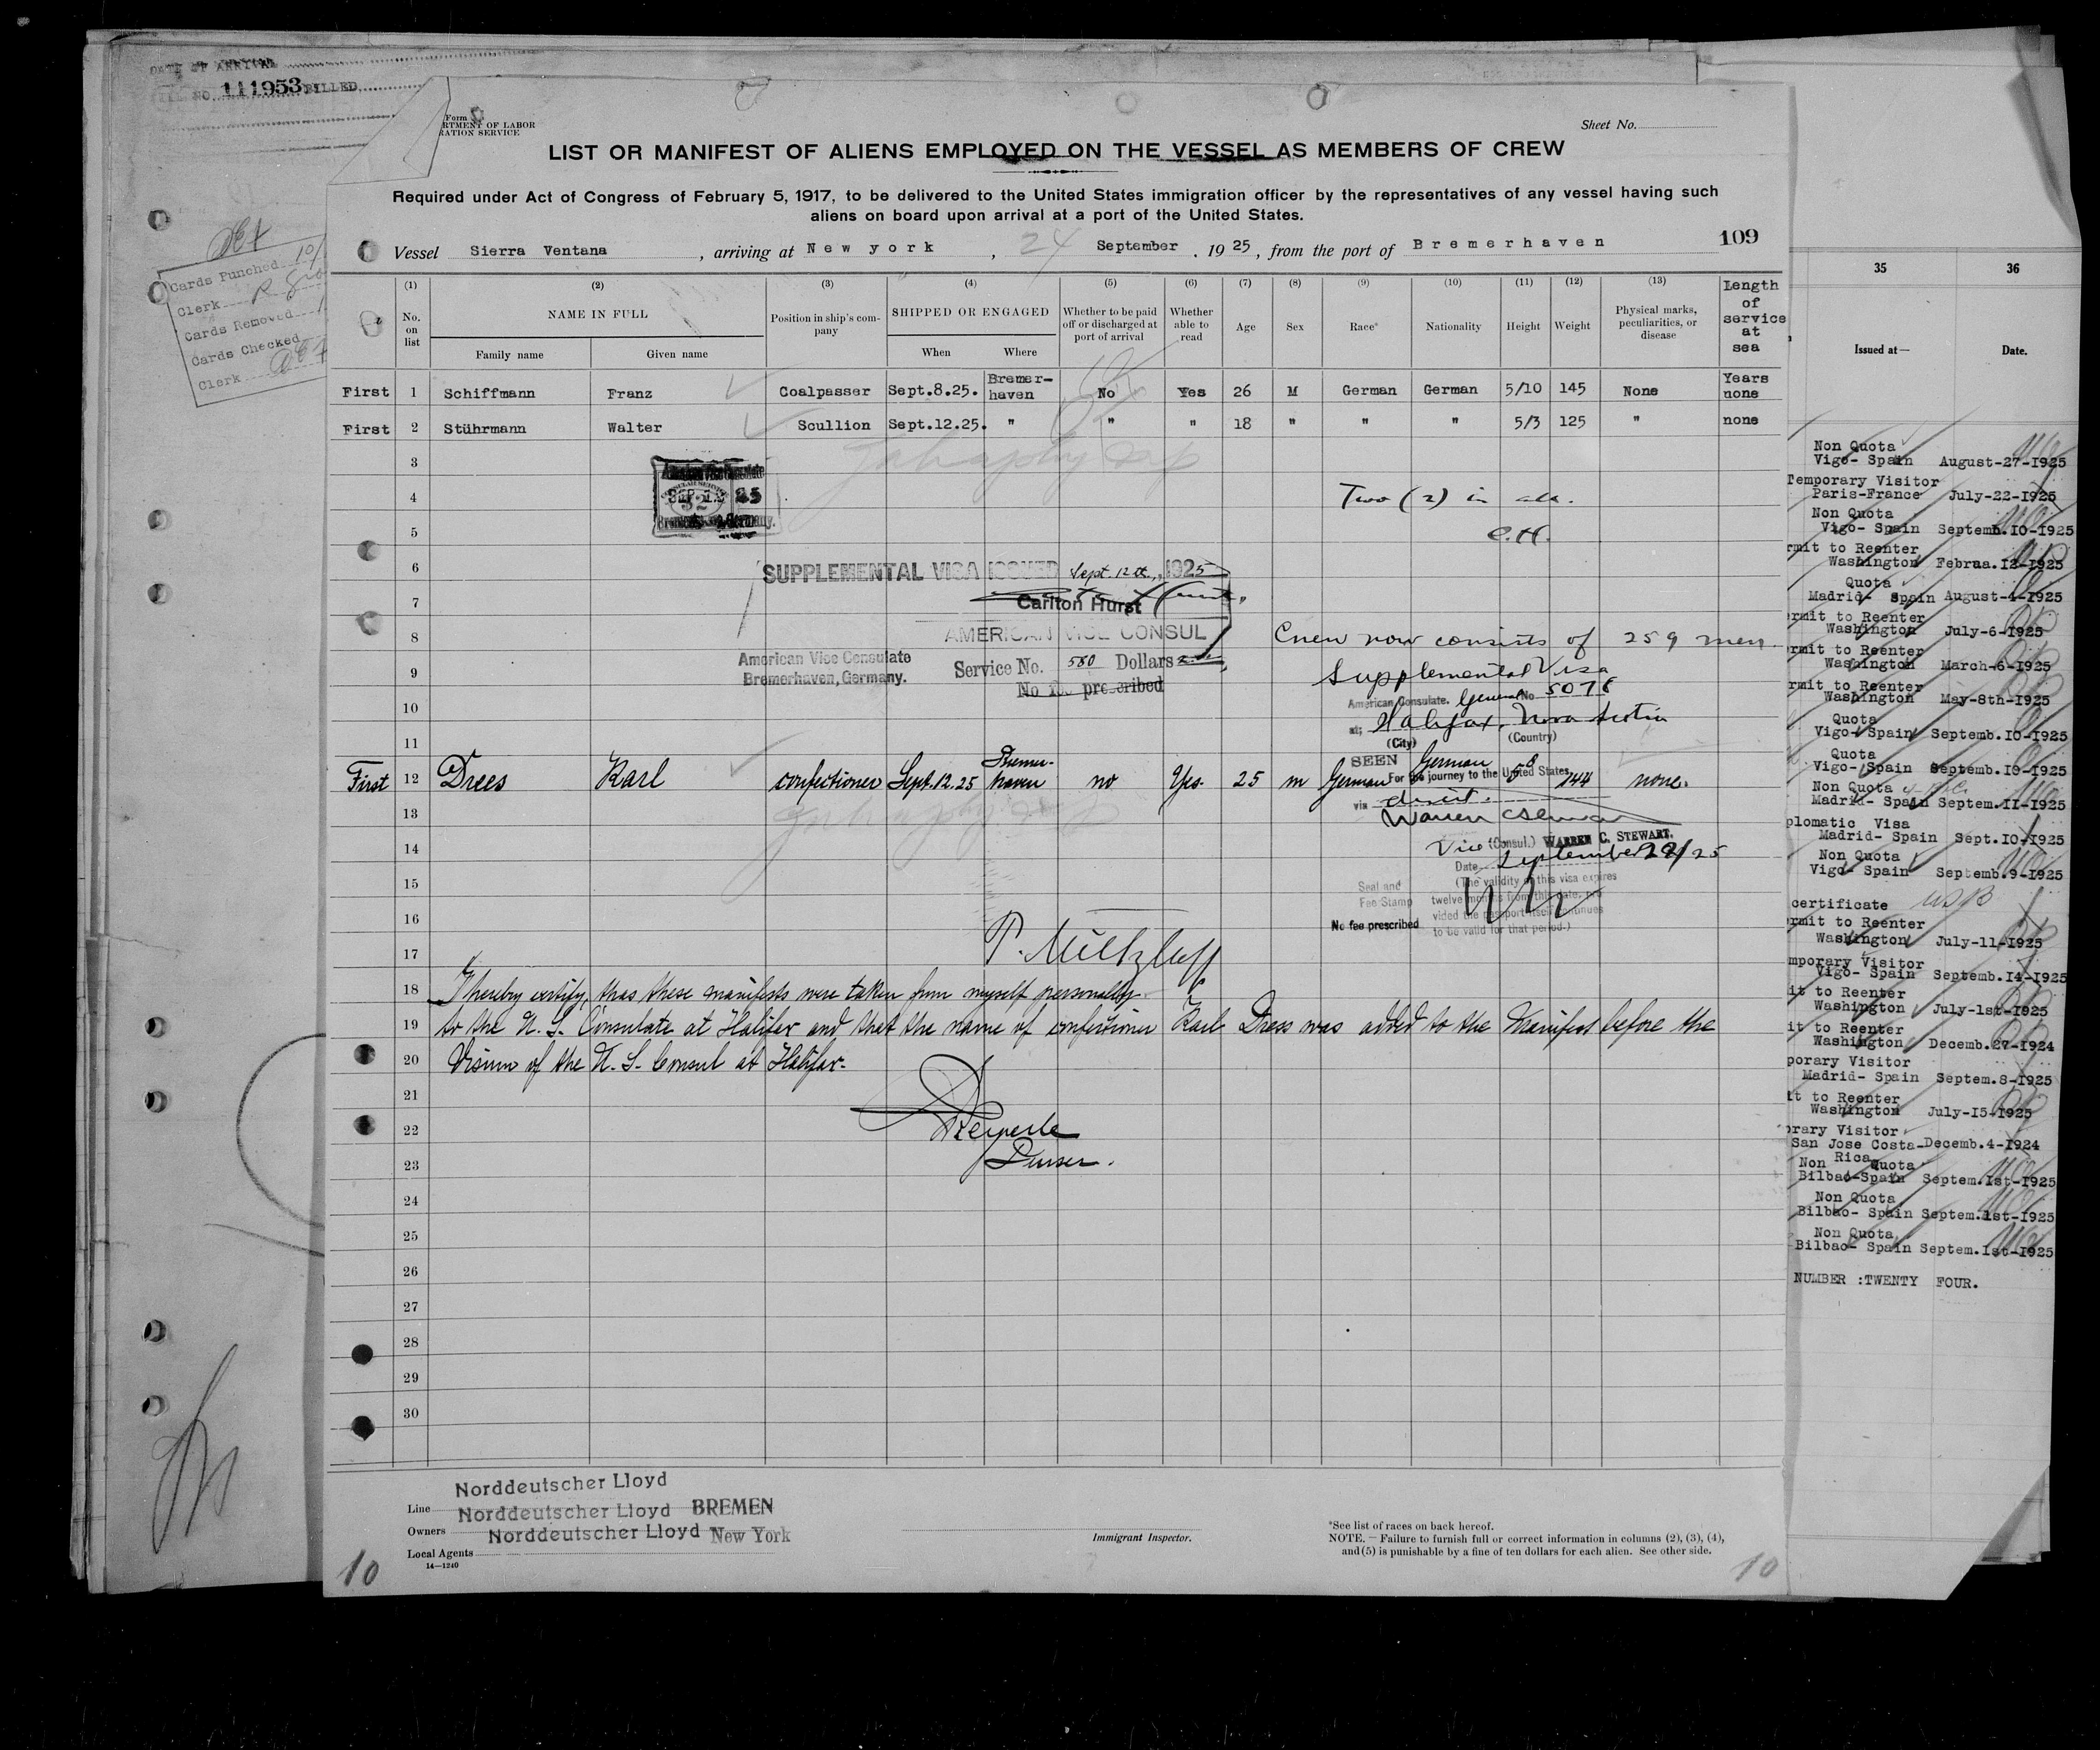 DATE OF ARRIVAL
NO. 111953 BILLED
Form
RTMENT OF LABOR
RATION SERVICE
Sheet No.
LIST OR MANIFEST OF ALIENS EMPLOYED ON THE VESSEL AS MEMBERS OF CREW
Required under Act of Congress of February 5, 1917, to be delivered to the United States immigration officer by the representatives of any vessel having such
aliens on board upon arrival at a port of the United States.
109
Vessel Sierra Ventana , arriving at New york , 24 September . 1925 , from the port of Bremerhaven
Cards Punched 10/
Clerk
Cards Removed
Cards Checked
Clerk
(1) (2) (3) (4) (5) (6) (7) (8) (9) (10) (11) (12) (13) Length of service at sea
No. on list NAME IN FULL Position in ship's company SHIPPED OR ENGAGED Whether to be paid off or discharged at port of arrival Whether able to read Age Sex Race* Nationality Height Weight Physical marks, peculiarities, or disease
Family name Given name When Where
First 1 Schiffmann Franz Coalpasser Sept.8.25. Bremer-haven No Yes 26 M German German 5/10 145 None Years none
First 2 Stührmann Walter Scullion Sept.12.25. " " " 18 " " " 5/3 125 " none
3
4 Two (2) in all.
5 C.H.
6 SUPPLEMENTAL VISA ISSUED Sept. 12th, 1925
7 Carlton Hurst
8 AMERICAN VICE CONSUL Crew now consists of 259 men
American Vice Consulate
Bremerhaven, Germany.
9 Service No. 580 Dollars Supplemental Visa
No fee prescribed
10 American Consulate General No 5078
at; Halifax, Nova Scotia
11 (City) (Country)
SEEN
12 First Drees Karl confectioner Sept.12.25 Bremer-haven no Yes. 25 m German German 5/8 144 none.
For the journey to the United States
13 via direct.
14 Vice (Consul.) WARREN C. STEWART.
Date September 22/25
15 (The validity of this visa expires
twelve months from this date, pro
16 vided the passport itself continues
to be valid for that period.)
Seal and
Fee Stamp
No fee prescribed
17
18 I hereby certify, thas these manifests were taken from myself personally
19 to the U. S. Consulate at Halifax and that the name of confectioner Karl Dress was added to the Manifest before the
20 Visum of the U. S. Consul at Halifax.
21
22
23 Purser.
24
25
26
27
28
29
30
Norddeutscher Lloyd
Line Norddeutscher Lloyd BREMEN
Owners Norddeutscher Lloyd New York
Local Agents
14—1240
Immigrant Inspector.
*See list of races on back hereof.
NOTE.— Failure to furnish full or correct information in columns (2), (3), (4),
and (5) is punishable by a fine of ten dollars for each alien. See other side.
10 10
35 36
Issued at— Date.
Non Quota
Vigo- Spain August-27-1925
Temporary Visitor
Paris-France July-22-1925
Non Quota
Vigo- Spain Septemb.10-1925
rmit to Reenter
Washington Februa.12-1925
Quota
Madrid- Spain August-4-1925
ermit to Reenter
Washington July-6-1925
ermit to Reenter
Washington March-6-1925
rmit to Reenter
Washington May-8th-1925
Quota
Vigo-Spain Septemb.10-1925
Quota
Vigo-Spain Septemb.10-1925
Non Quota
Madrid- Spain Septem.11-1925
plomatic Visa
Madrid- Spain Sept.10-1925
Non Quota
Vigo- Spain Septemb.9-1925
certificate
ermit to Reenter
Washington July-11-1925
mporary Visitor
Vigo- Spain Septemb.14-1925
it to Reenter
Washington July-1st-1925
it to Reenter
Washington Decemb.27-1924
porary Visitor
Madrid- Spain Septem.8-1925
it to Reenter
Washington July-15-1925
orary Visitor
San Jose Costa- Decemb.4-1924
Rica
Non Quota
Bilbao-Spain Septem.1st-1925
Non Quota
Bilbao- Spain Septem.1st-1925
Non Quota
Bilbao- Spain Septem.1st-1925
NUMBER :TWENTY FOUR.